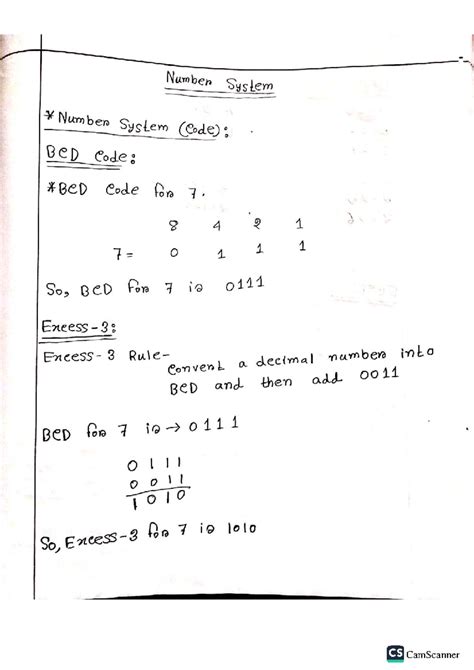 Number System
* Number System (Code):
BCD Code:
* BCD Code for 7.
8 4 2 1
7 = 0 1 1 1
So, BCD for 7 is 0111
Excess-3:
Excess-3 Rule-
Convert a decimal number into
BCD and then add 0011
BCD for 7 is → 0111
0111
0011
1010
So, Excess-3 for 7 is 1010
CS CamScanner